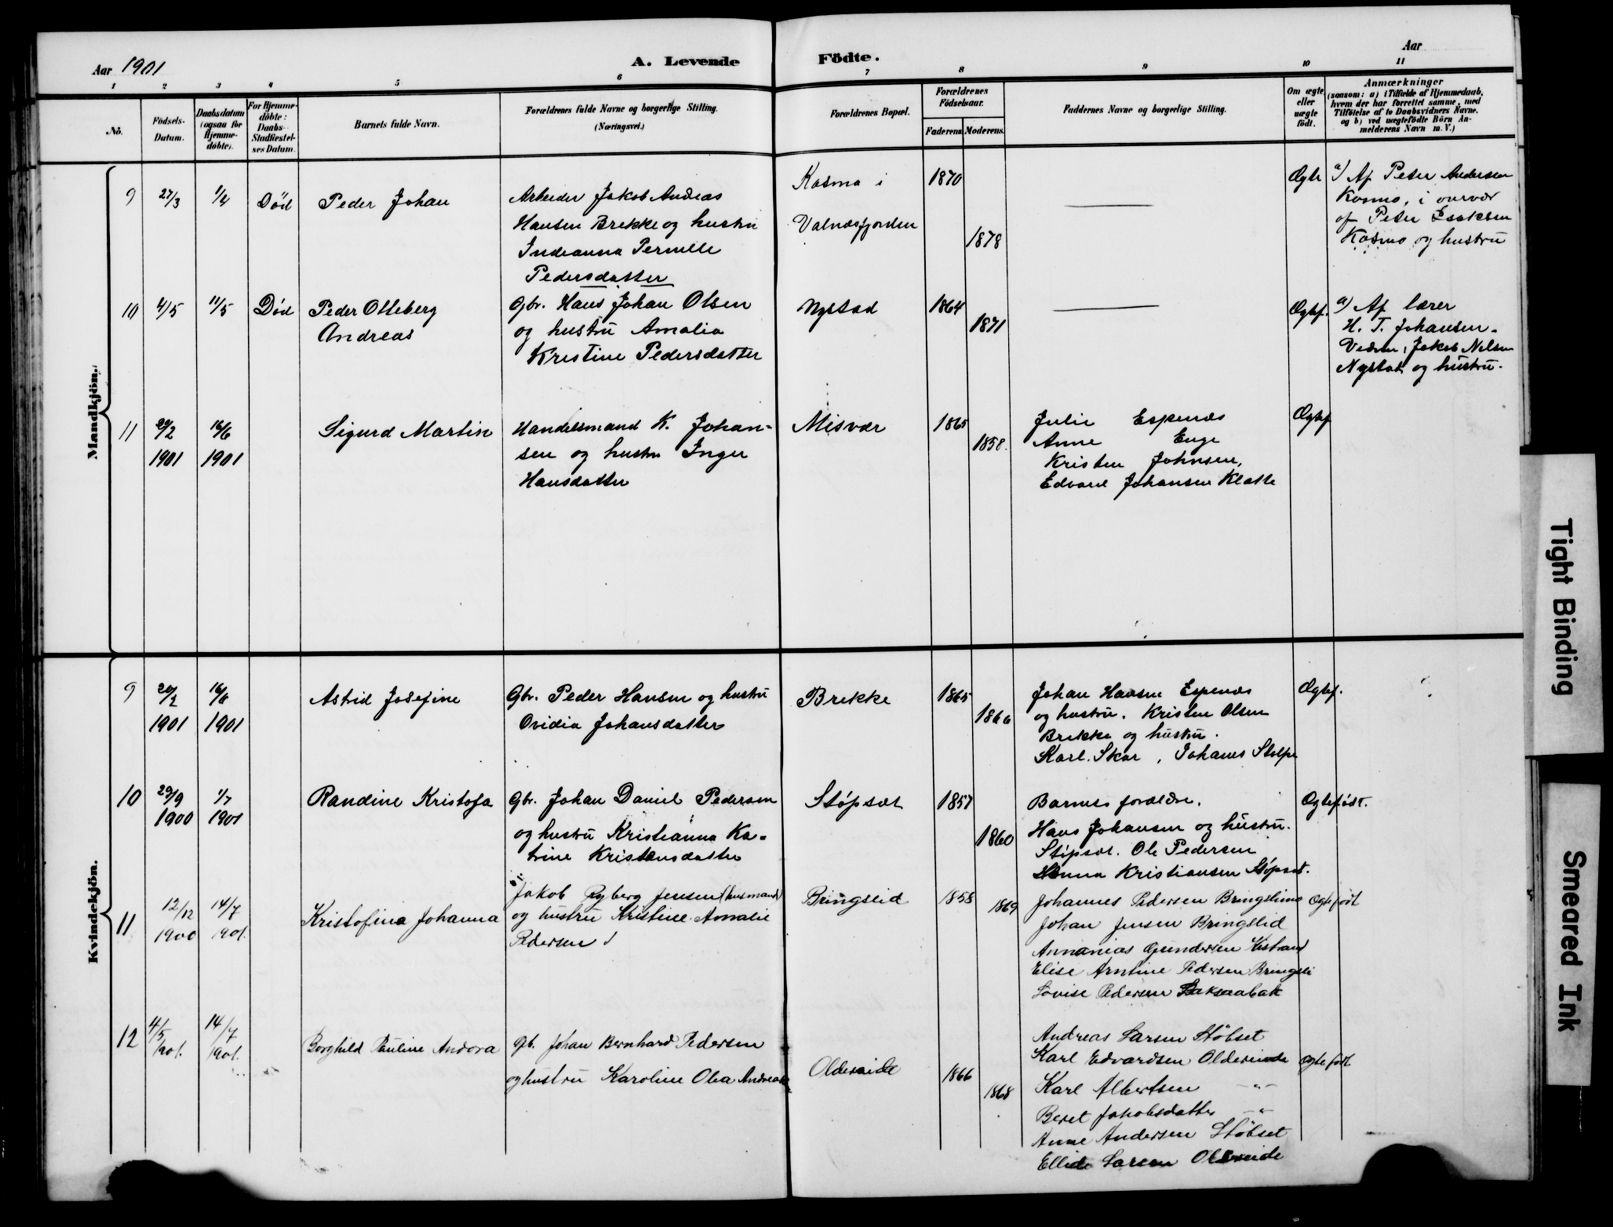 Aar 1901
A. Levende
Födte.
Aar
1 2 3 4 5 6 7 8 9 10 11
No.
Födsels-
Datum.
Daabsdatum
(ogsaa for
Hjemme-
döbte).
For Hjemme-
döbte:
Daabs-
Stadfæstel-
ses Datum.
Barnets fulde Navn.
Forældrenes fulde Navne og borgerlige Stilling.
(Næringsvei.)
Forældrenes Bopæl.
Forældrenes
Födselsaar.
Faderens
Moderens
Faddernes Navne og borgerlige Stilling.
Om ægte
eller
uægte
födt.
Anmærkninger
(saasom: a) i Tilfælde af Hjemmedaab,
hvem der har forrettet samme, med
Tilföielse af to Daabsvidners Navne.
og b) ved uægtefödte Börn An-
melderens Navn m. V.)
Mandkjön.
9
27/3
1/4
Död
Peder Johan
Arbeider Jakob Andreas
Hansen Brekke og hustru
Indianna Pernelle
Pedersdatter
Kosmo i
Valnæsfjorden
1870
1878
Ægte
a) Af Peter Andersen
Kosmo, i overvær
af Peter Isaksen
Kosmo og hustru
10
4/5
11/5
Död
Peder Otteberg
Andreas
Gbr. Hans Johan Olsen
og hustru Amalia
Kristine Pedersdatter
Nystad
1864
1871
Ægtef.
a) Af lærer
H. T. Johansen
Jakob Nilsen
Nystad og hustru.
11
1901
16/6
1901
Sigurd Martin
Handelsmand K. Johan-
sen og hustru Inger
Hansdatter
Misvær
1865
1858.
Julie Espenæs
Anne Enge
Kristen Johnsen,
Edvard Johansen Kletta
Ægtef
Kvindekjön.
9
20/2
1901
16/6
1901
Astrid Josefine
Gbr. Peder Hansen og hustru
Ovidia Johansdatter
Brekke
1865
1866
Johan Hansen Espenæs
og hustru. Kristen Olsen
Brekke og hustru.
Karl Skar, Johanes Stolpe
Ægtef.
10
29/9
1900
1/7
1901
Randine Kristofa
Gbr. Johan Daniel Pedersen
og hustru Kristianna Ka-
trine Kristensdatter
Stöpset
1857
1860
Barnets forældre.
Hans Johansen og hustru.
Stöpset. Ole Pedersen
Anna Kristiansen Stöpset.
Ægtefödt.
11
12/12
1900
14/7
1901.
Kristofina Johanna
Jakob Ryberg Jensen (husmand)
og hustru Kristine Amalie
Pedersen
Bringslid
1858
1869
Johannes Pedersen Bringslimo
Johan Jensen Bringslid
Annanias Gundersen Kistrand
Elise Arntine Pedersen Bringsli
Lovise Pedersen
Ægtefödt
12
4/5
1901.
14/7
1901.
Borghild Pauline Andora
Gb. Johan Bernhard Pedersen
og hustru Karoline Olea
Oldereide
1866
1868
Andreas Larsen Stöbset
Karl Edvardsen Oldereide
Karl Albertsen —"—
Beret Jakobsdatter —"—
Anne Andersen Stöbset
Ellide Larsen Oldereide
Ægtefödt
Tight Binding
Smeared Ink